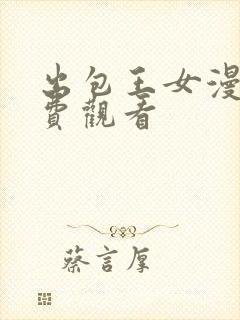 出包王女漫
費觀看
蔡言厚